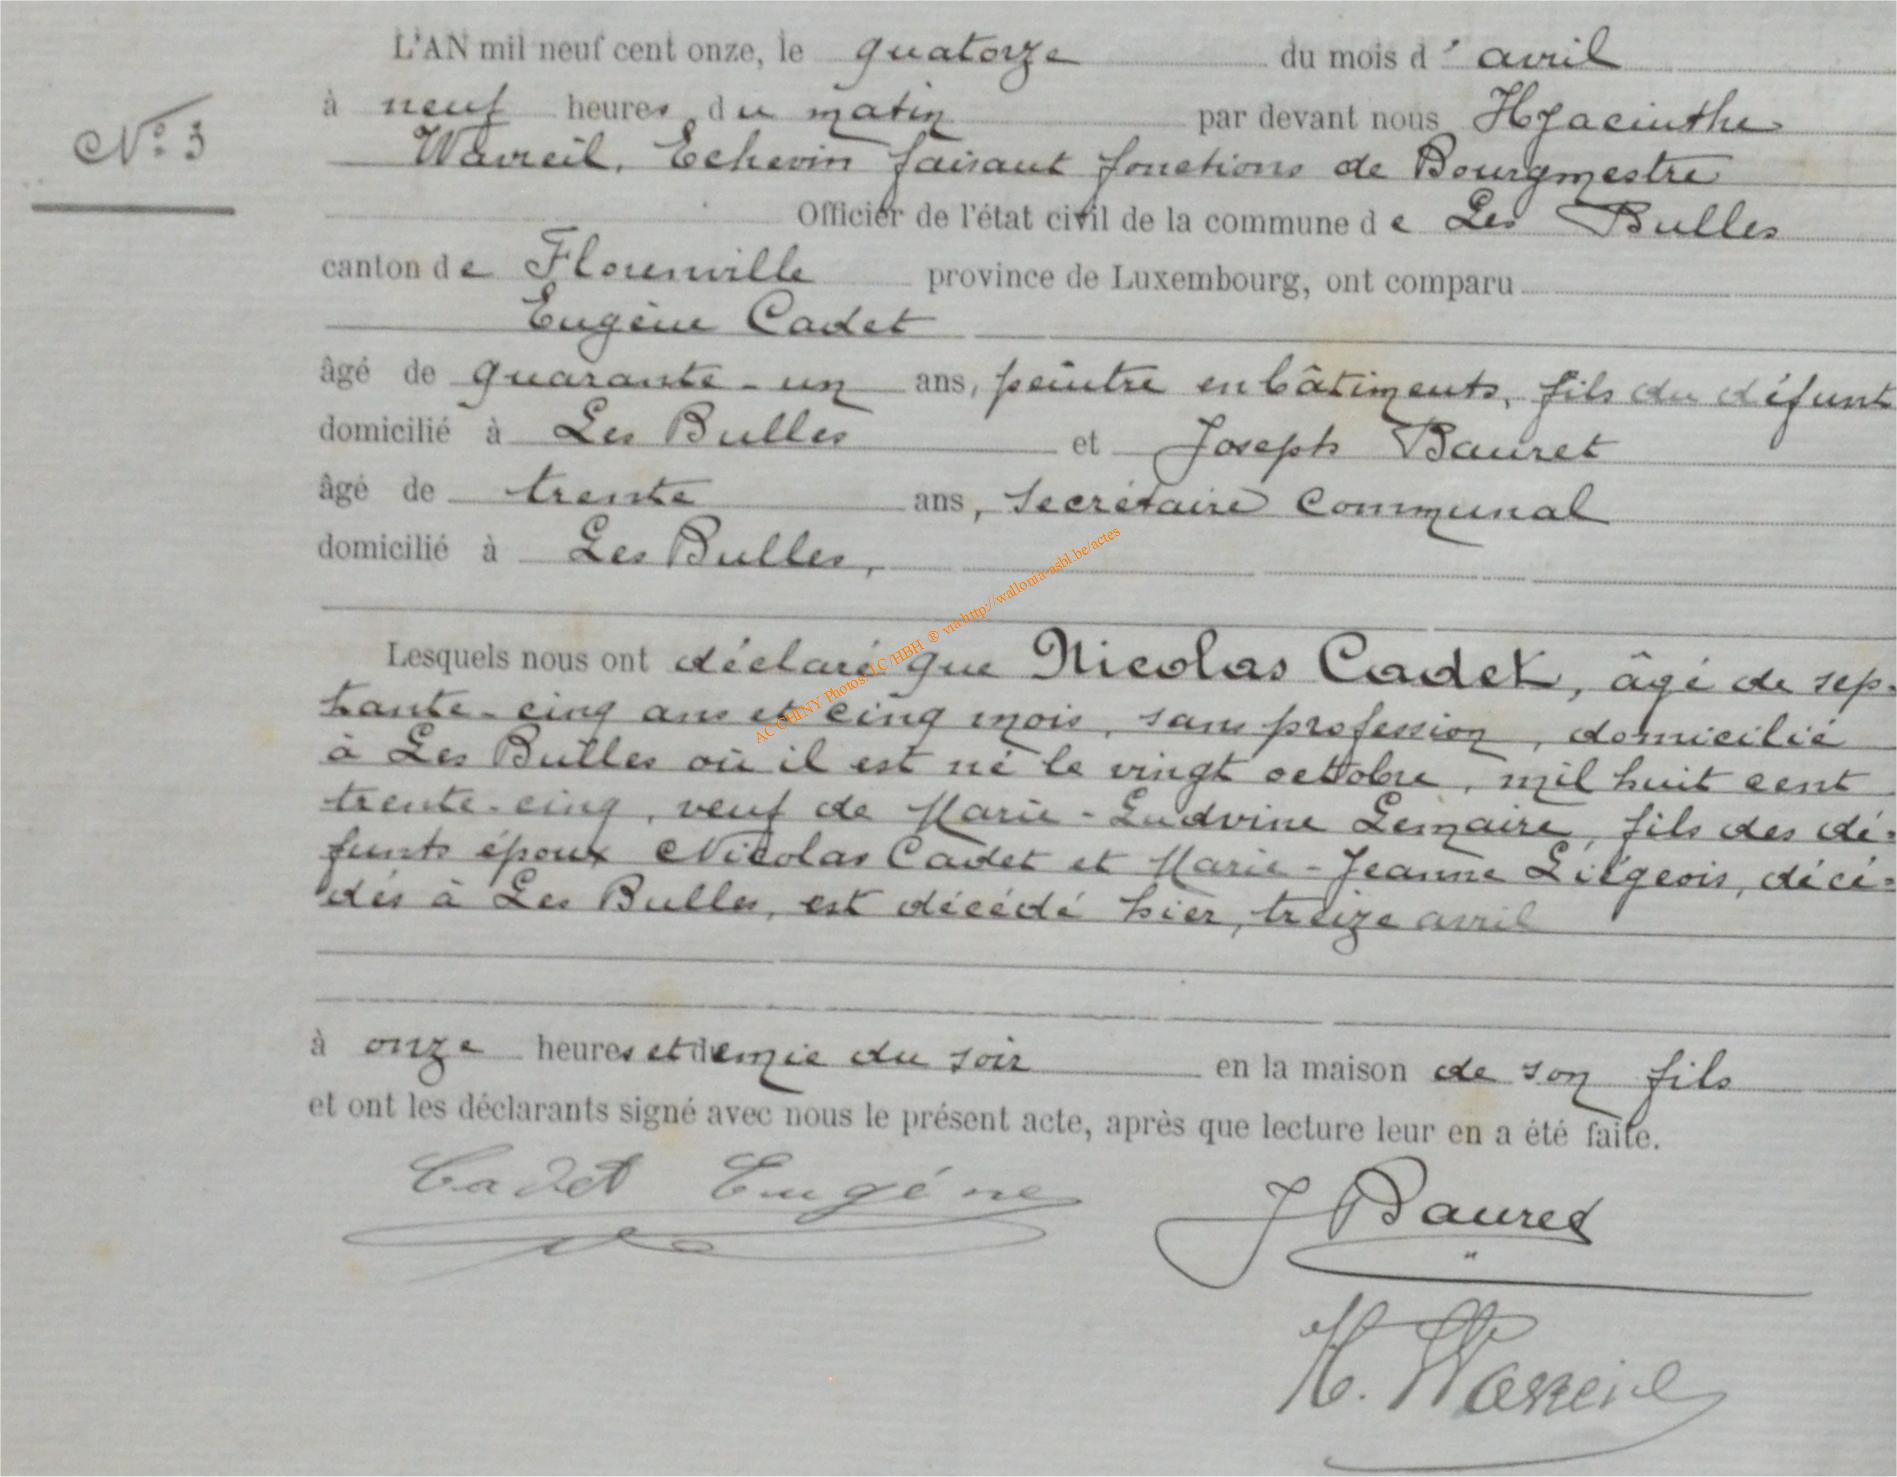 L'AN mil neuf cent onze, le quatorze du mois d'avril
N° 3
à neuf heures du matin par devant nous Hyacinthe
Wavreil, Echevin faisant fonctions de Bourgmestre
Officier de l'état civil de la commune de Les Bulles
canton de Florenville province de Luxembourg, ont comparu
Eugène Cadet
âgé de quarante-un ans, peintre en bâtiments, fils du défunt
domicilié à Les Bulles et Joseph Bauret
âgé de trente ans, secrétaire communal
domicilié à Les Bulles,
AC CHINY Photos LC/HBH ® via http://wallonia-asbl.be/actes
Lesquels nous ont déclaré que Nicolas Cadet, âgé de sep-
tante-cinq ans et cinq mois, sans profession, domicilié
à Les Bulles où il est né le vingt octobre, mil huit cent
trente-cinq, veuf de Marie-Ludvine Lemaire, fils des dé=
funts époux Nicolas Cadet et Marie-Jeanne Liégeois, décé=
dés à Les Bulles, est décédé hier, treize avril
à onze heures et demie du soir en la maison de son fils
et ont les déclarants signé avec nous le présent acte, après que lecture leur en a été faite.
Cadet Eugéne
J Bauret
H. Wavreil